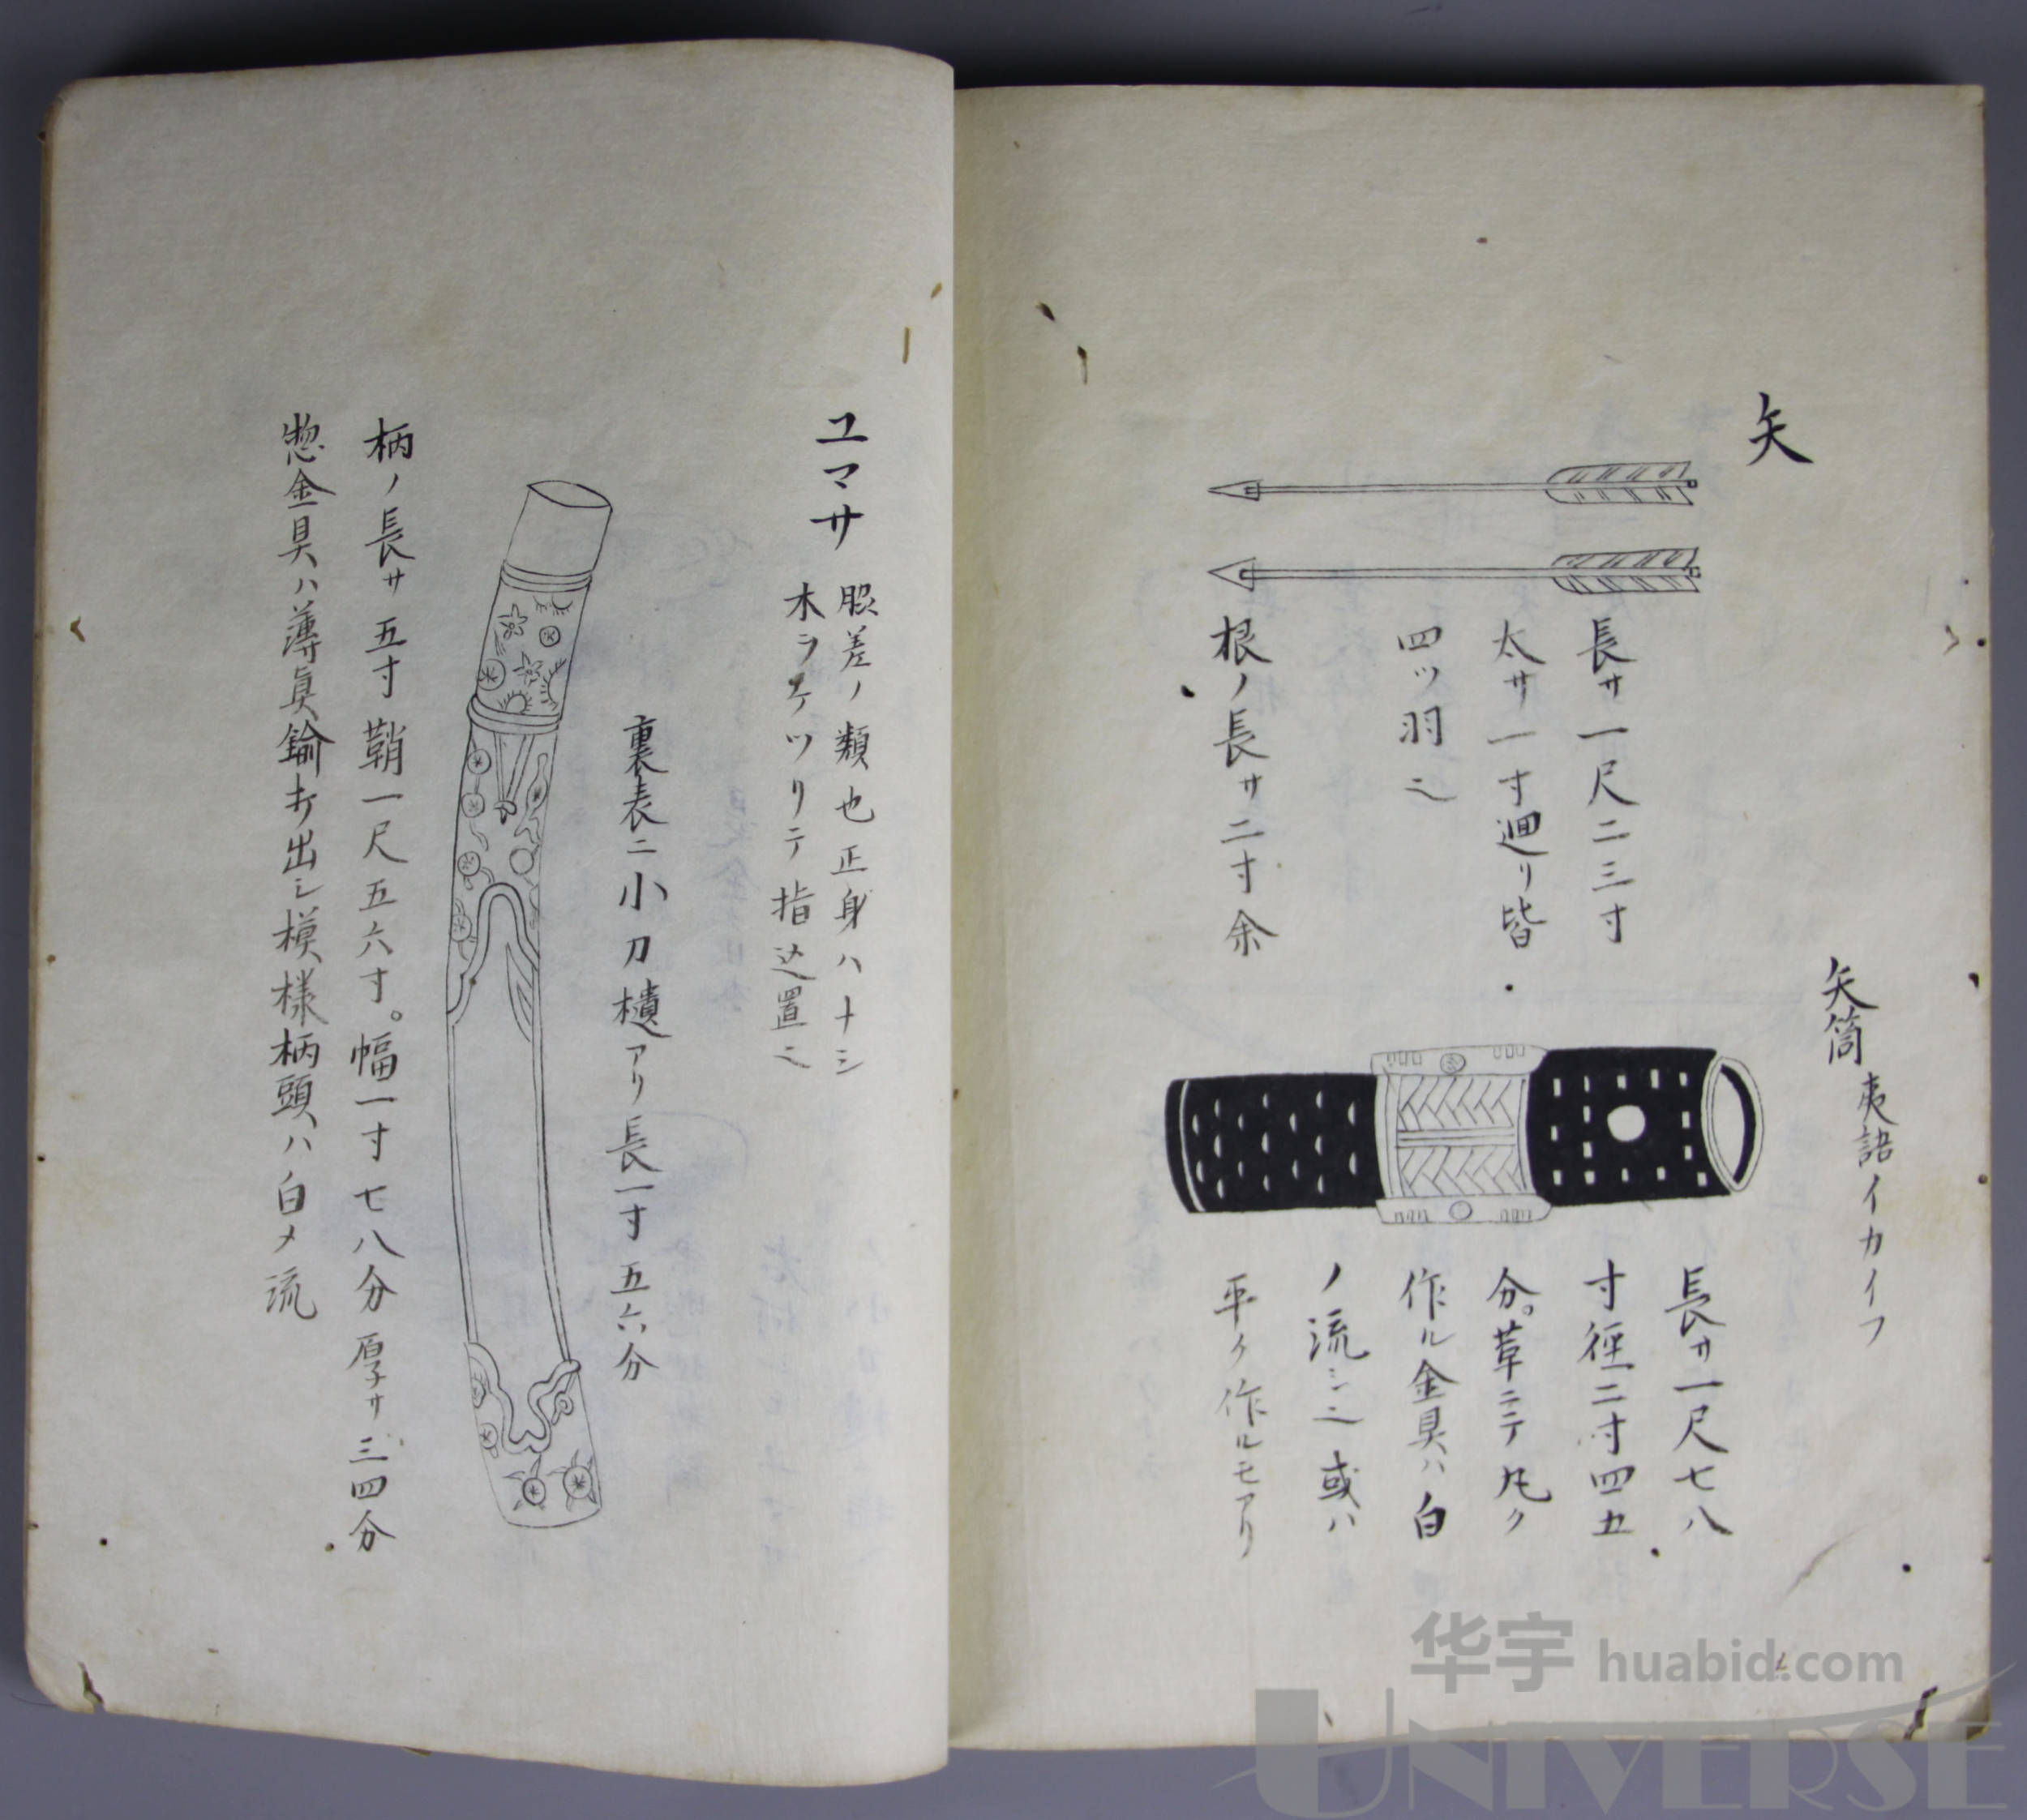 矢
長サ一尺二三寸
太サ一寸廻リ皆
四ツ羽之
根ノ長サ二寸余
矢筒 夷語イカイフ
長サ一尺七八
寸径二寸四五
分。革ニテ丸ク
作ル金具ハ白
ノ流シ之或ハ
平ク作ルモアリ
ユマサ
脇差ノ類也正身ハナシ
木ヲケツリテ指込置之
裏表ニ小刀樻アリ長一寸五六分
柄ノ長サ五寸鞘一尺五六寸。幅一寸七八分厚サ三四分
惣金具ハ薄真鍮打出シ模様柄頭ハ白メ流
华宇 huabid.com
UNIVERSE